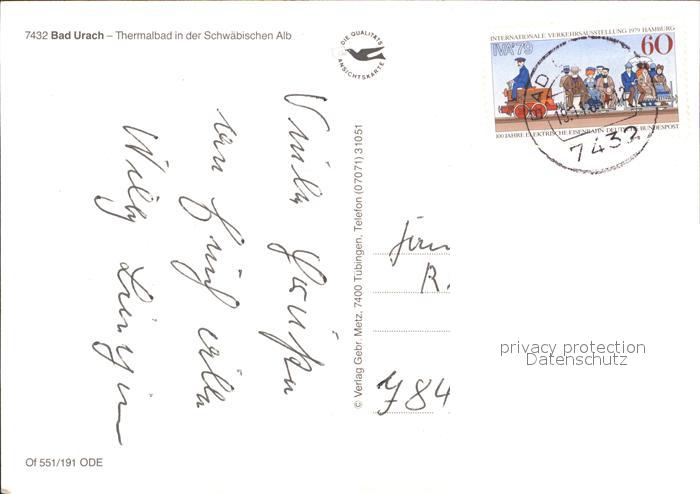 7432 Bad Urach – Thermalbad in der Schwäbischen Alb
DIE QUALITÄTS
ANSICHTSKARTE
INTERNATIONALE VERKEHRSAUSSTELLUNG 1979 HAMBURG
IVA'79
60
100 JAHRE ELEKTRISCHE EISENBAHN · DEUTSCHE BUNDESPOST
7432
Viele Grüße
Willy
© Verlag Gebr. Metz, 7400 Tübingen, Telefon (07071) 31051
R.
784
privacy protection
Datenschutz
Of 551/191 ODE